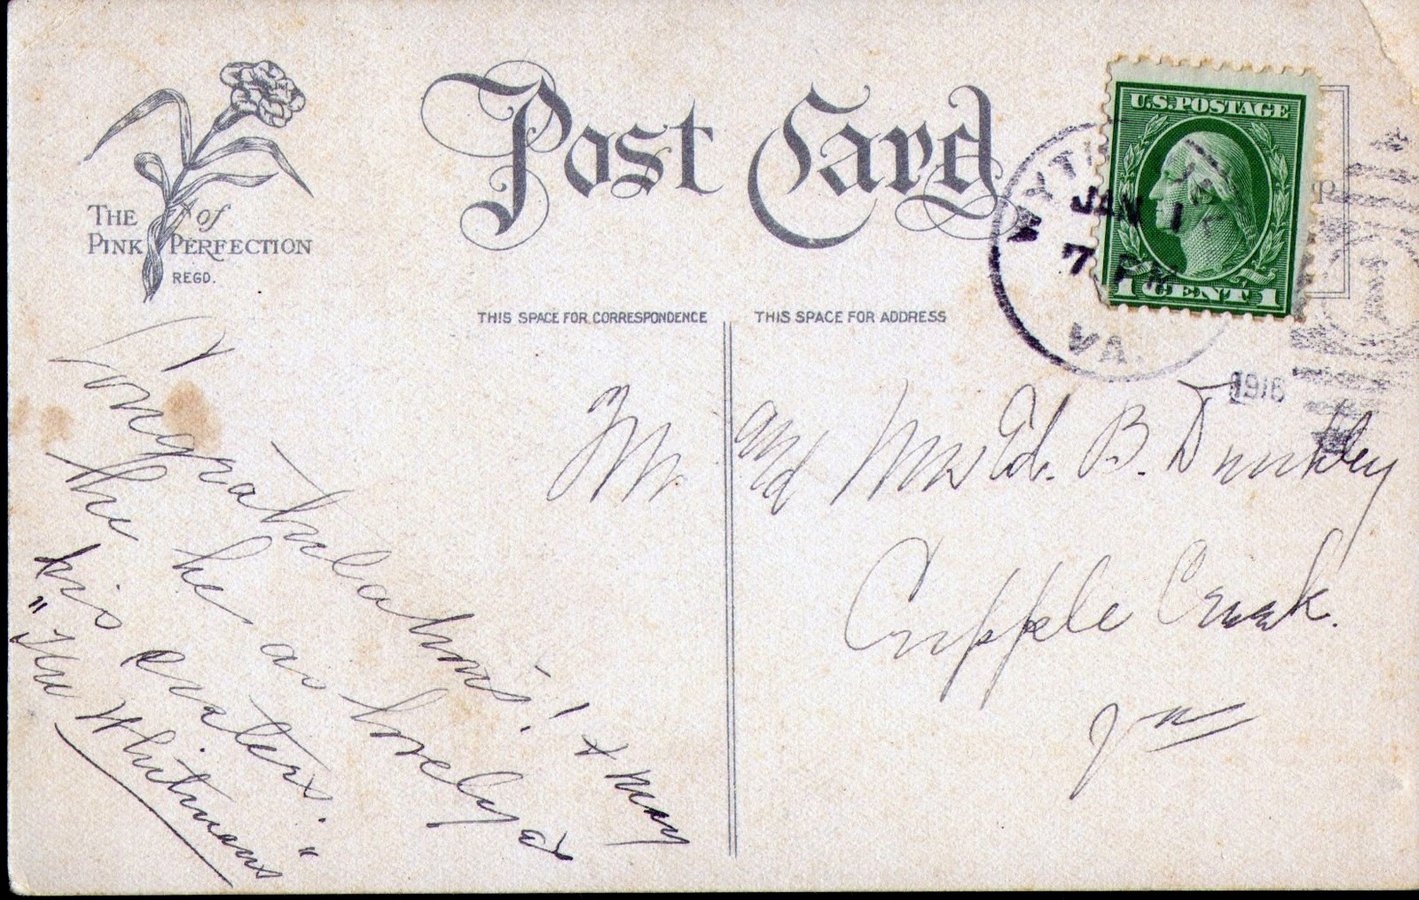 Post Card
THE of
PINK PERFECTION
REGD.
U.S. POSTAGE
1 CENT 1
WYTHEVILLE
JAN 1
7 PM
VA.
1916
THIS SPACE FOR CORRESPONDENCE
THIS SPACE FOR ADDRESS
Congratulations! & may
he be as lovely as
his sisters.
"The Whitmans"
Mr and Mrs Ed. B. Dunkley
Cripple Creek.
Va